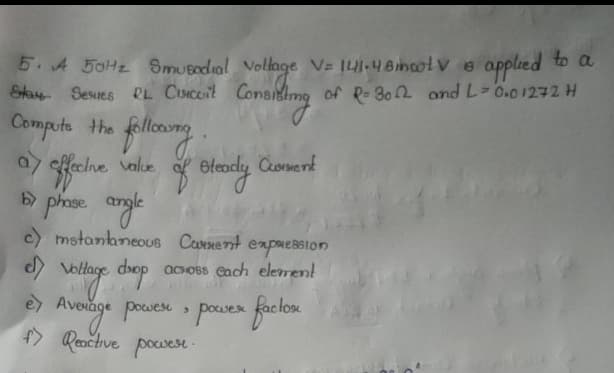 5. A 50Hz Sinusodial Voltage V= 141.4 Sinωt v is applied to a
Series RL Circuit Consisting of R=30Ω and L=0.01272 H
Compute the following.
a) effective value of Steady Current
b) phase angle
c) instantaneous Current expression
d) Voltage drop across each element
e) Average power, power factor
f) Reactive power.